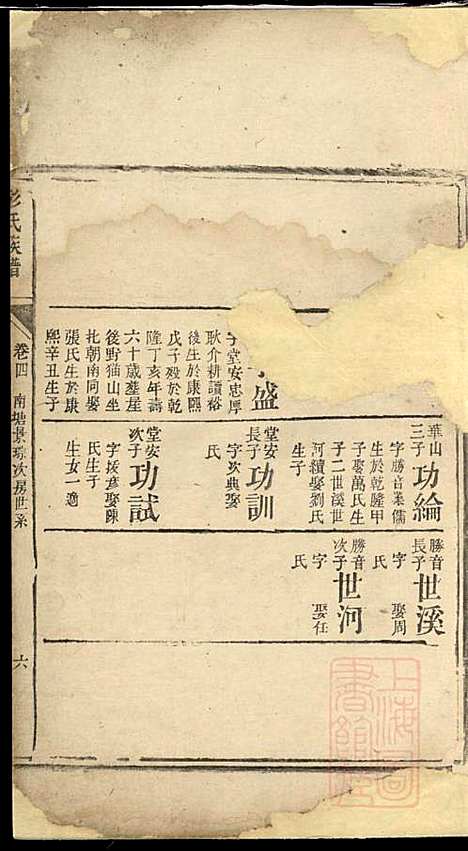 盛
子堂安忠厚
耿介耕讀裕
後生於康熙
戊子歿於乾
隆丁亥年壽
六十歲塟崖
後野猫山坐
朝南同娶
張氏生於康
熙辛丑生子
華山
三子
功綸
字勝音業儒
生於乾隆甲
子娶萬氏生
子二世溪世
河續娶劉氏
生子
堂安
長子
功訓
字次典娶
氏
堂安
次子
功試
字援彥娶陳
氏生子
生女一適
勝音
長子
世溪
字 娶周
氏
勝音
次子
世河
字 娶任
氏
彭氏族譜
卷四
南塘景琮次房世系
六
上海圖書館藏